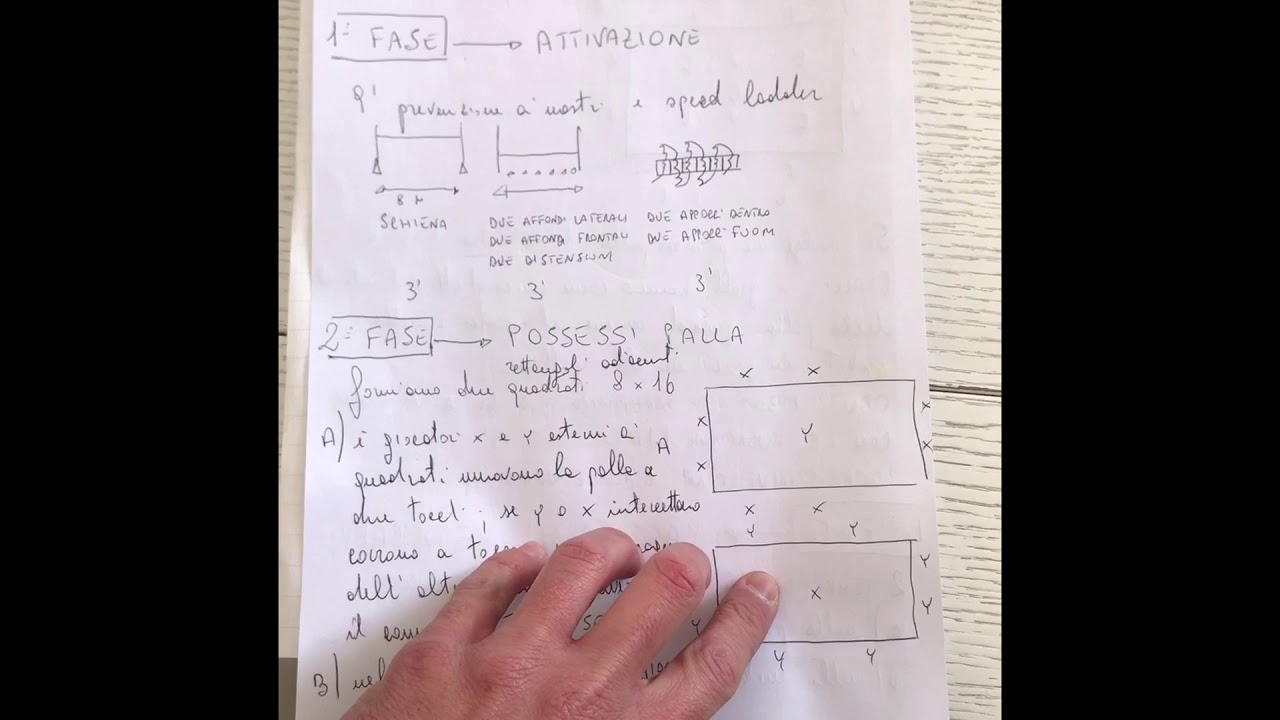 1ª FASE → ATTIVAZIONE
9' prevenzione a nastri e speed ladder
8 M
SCHIENA
DUE AFFONDI LATERALI
DUE AFFONDI FRONTALI
DUE DISTENSIONI
DUE APPOGGI DENTRO
DUE APPOGGI FUORI
3' 3' 3'
2ª FASE → POSSESSI PALLA
rettangoli adiacenti
formiamo due quadrati 8 x 16
A) i giocatori x e y esterni ai
quadrati muovono la palla a
due tocchi ; se y o x intercettano
corrono a
dell'
il
B) nel
A
x x
x x
x x
Y
x x
Y Y
Y
Y
x
Y
Y Y